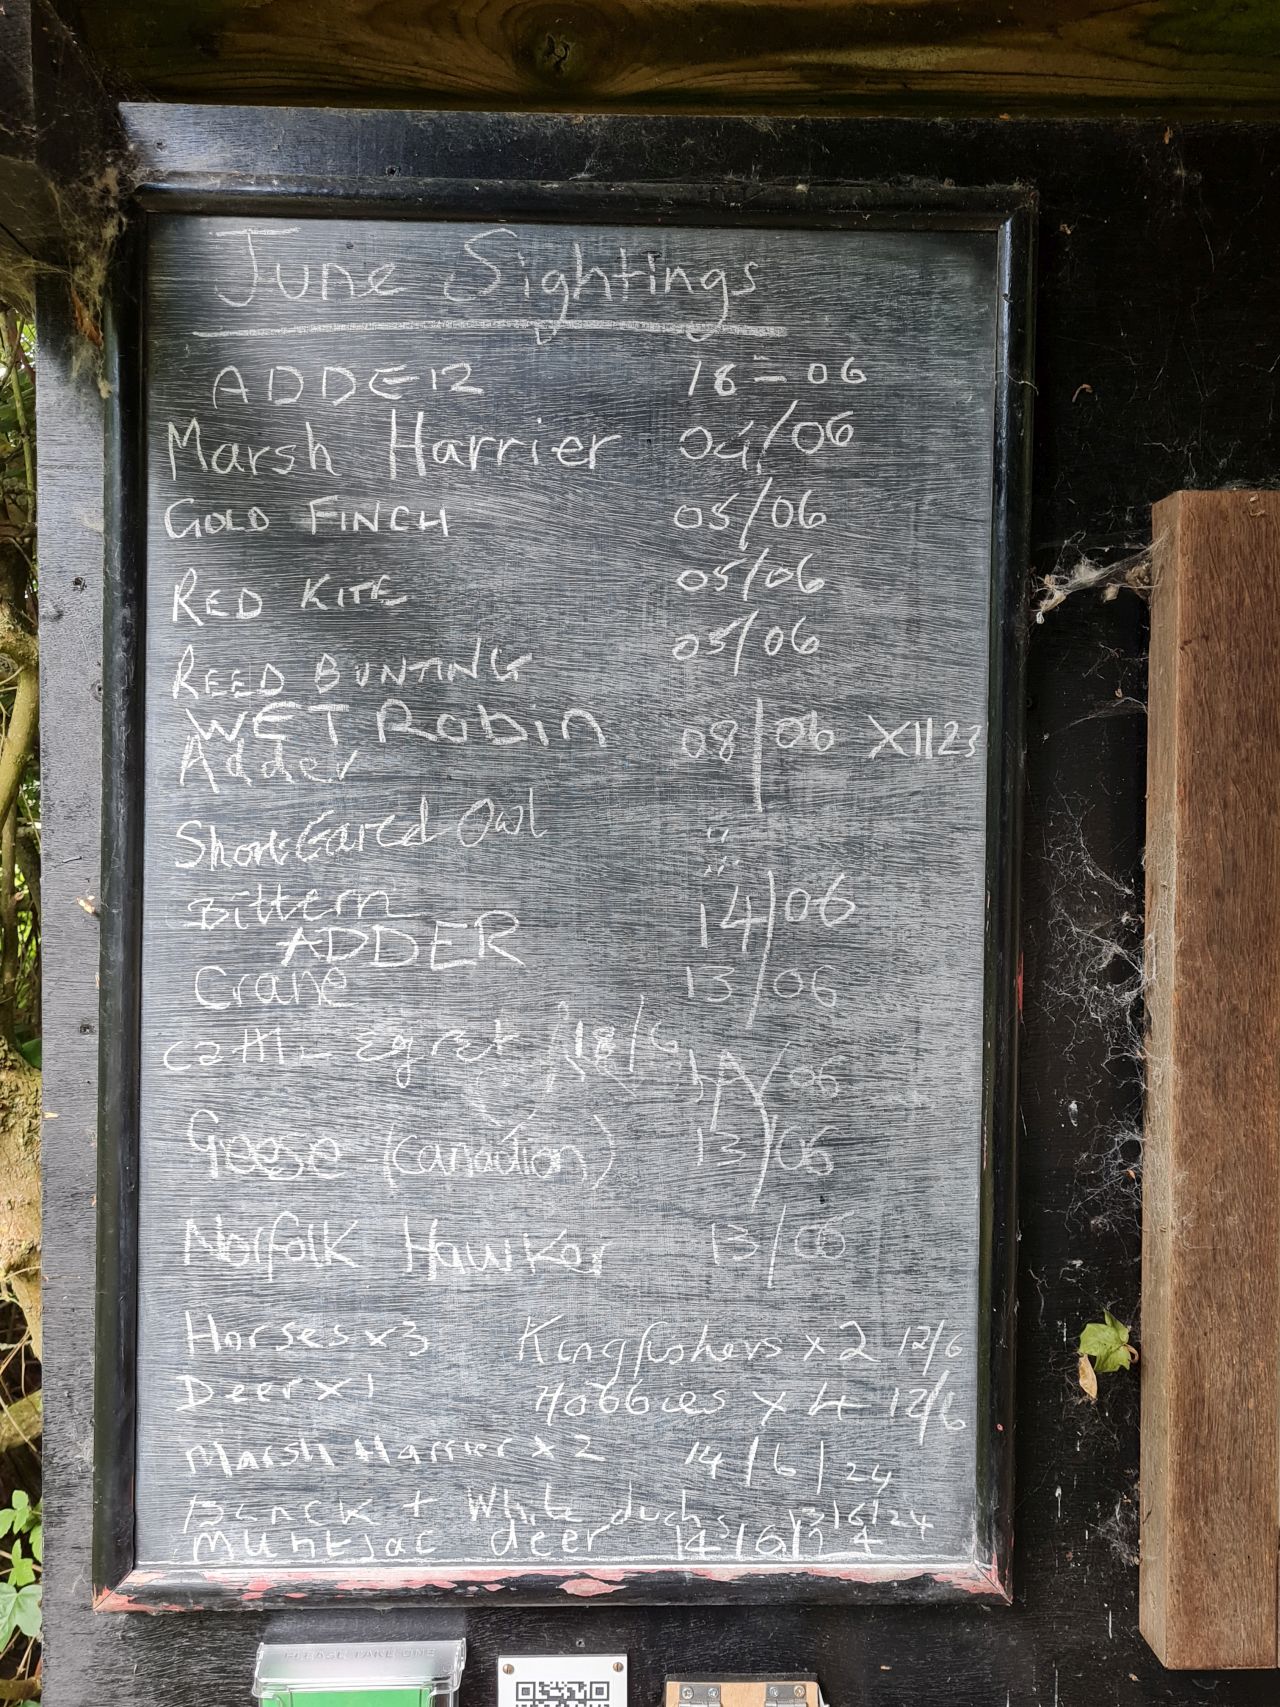 June Sightings
ADDER 18-06
Marsh Harrier 04/06
GOLD FINCH 05/06
RED KITE 05/06
REED BUNTING 05/06
WET Robin 08/06 X1123
Adder
Short Eared Owl
Bittern 14/06
ADDER
Crane 13/06
Egret 18/6
/06
Geese (Canadian) 13/06
Norfolk Hawker 13/06
Horses x3 Kingfishers x 2 12/6
Deer x 1 Hobbies x 4 12/6
Marsh Harrier x 2 14/6/24
+ White ducks 13/6/24
Muntjac deer 14/6/24
PLEASE TAKE ONE